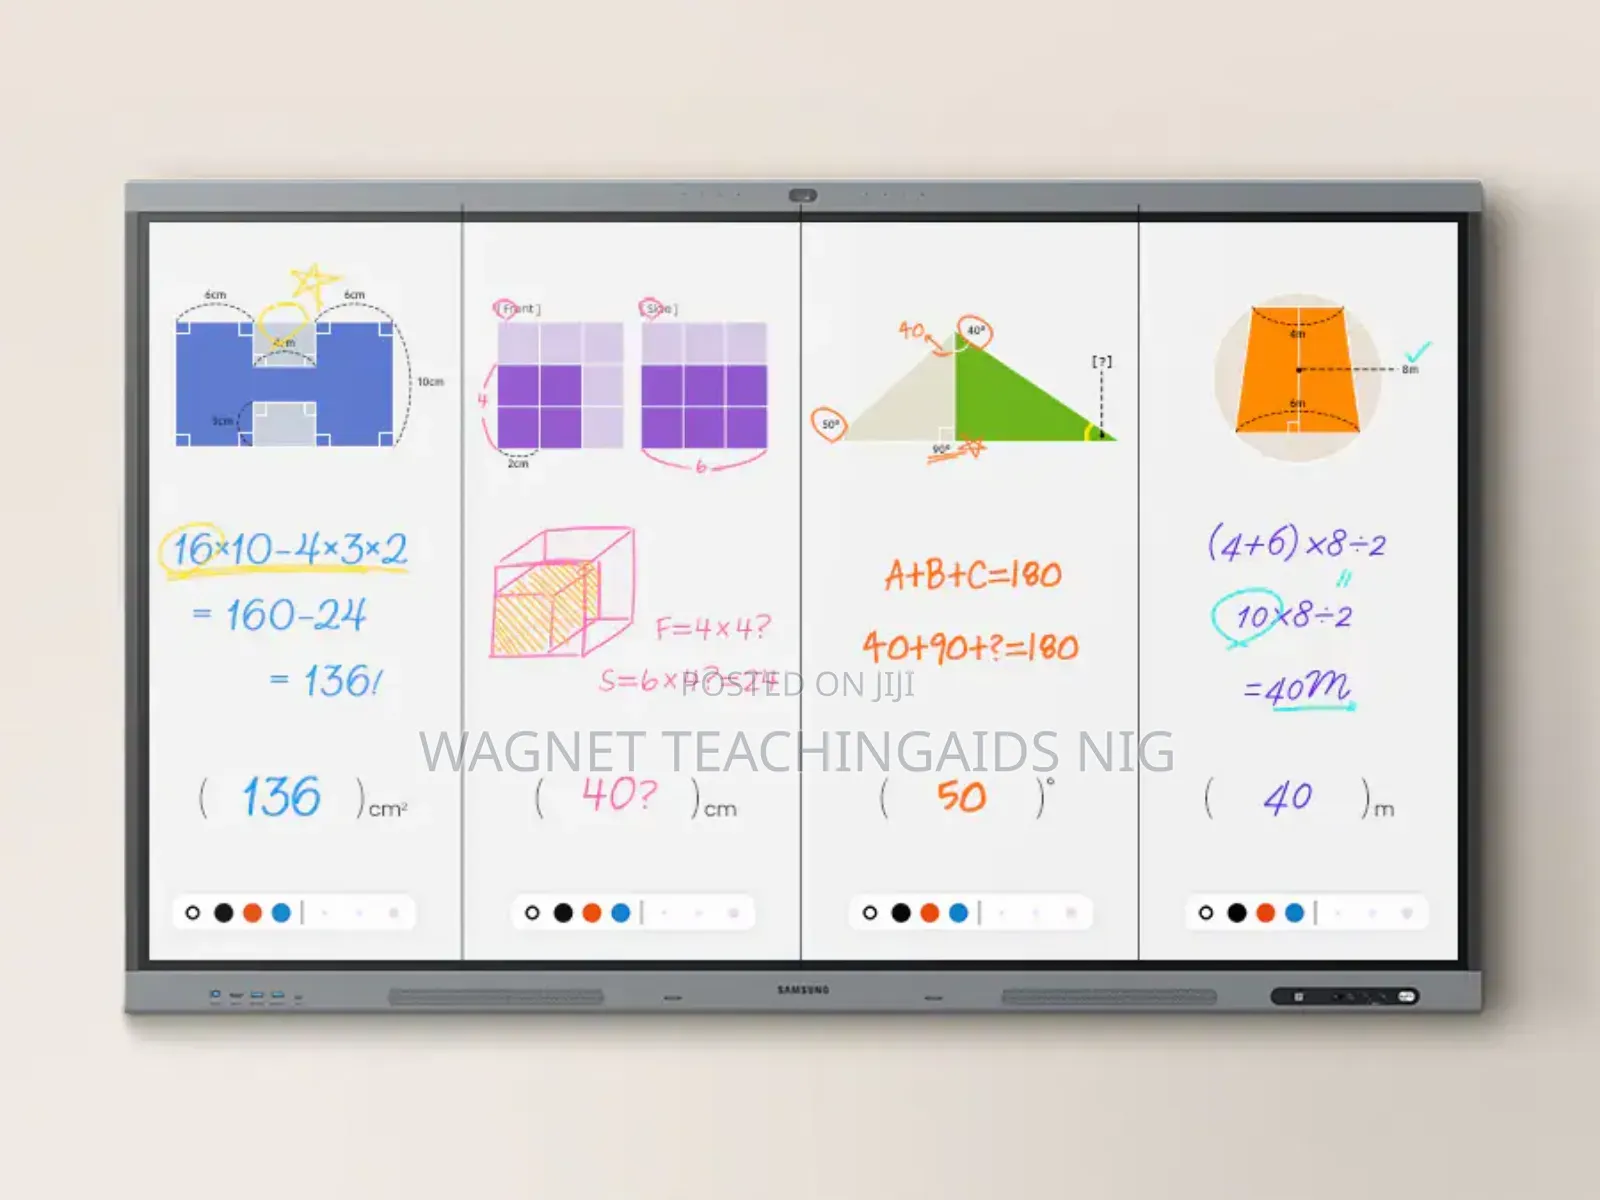 6cm 6cm
4cm
10cm
3cm
16×10-4×3×2
= 160-24
= 136!
( 136 )cm²
[Front] [Side]
4
2cm
6
F=4×4?
S=6×4?=24
( 40? )cm
40 40°
[?]
50°
90°
A+B+C=180
40+90+?=180
( 50 )°
4m
8m
6m
(4+6)×8÷2
10×8÷2
=40m
( 40 )m
POSTED ON JIJI
WAGNET TEACHINGAIDS NIG
SAMSUNG